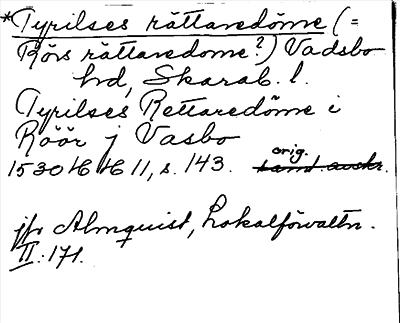 *Tyrilses rättaredöme (=
Rörs rättaredome?) Vadsbo
hrd, Skarab. l.
Tyrilses Rettaredöme i
Röör j Vasbo
1530 HH 11, s. 143. orig. samt. avskr.
jfr Almquist, Lokalförvaltn.
II: 171.